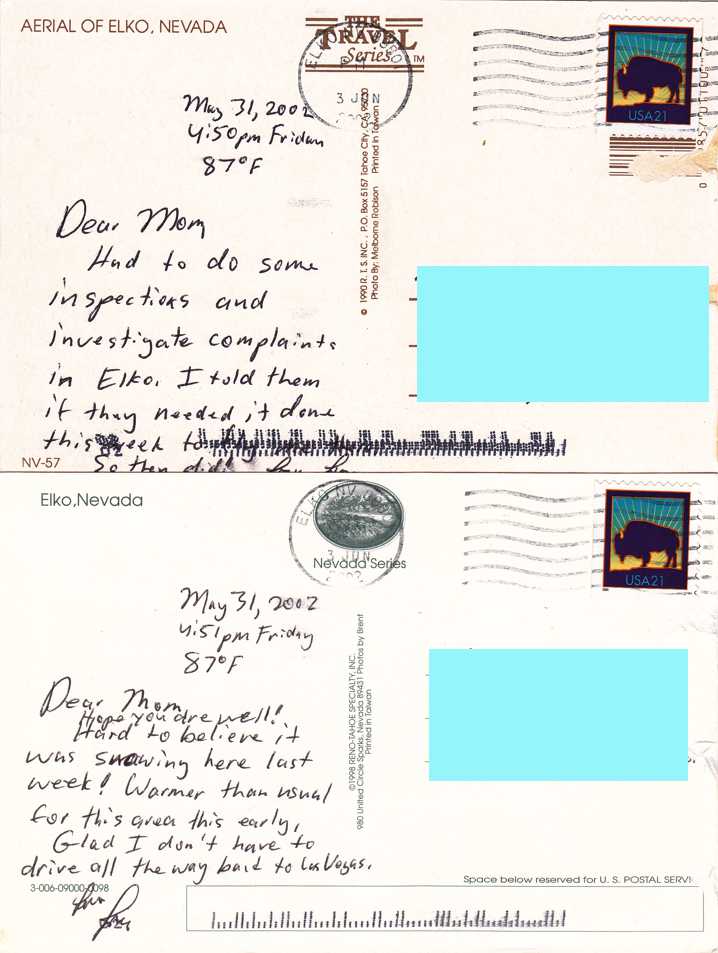 AERIAL OF ELKO, NEVADA
THE
TRAVEL
Series™
ELKO
3 JUN
USA21
May 31, 2002
4:50pm Friday
87°F
© 1990 R. T. S. INC., P.O. Box 5157 Tahoe City, CA 95730
Photo By: Melborne Robison Printed in Taiwan
Dear Mom
Had to do some
inspections and
investigate complaints
in Elko. I told them
if they needed it done
this week to
NV-57
So they did!
Elko, Nevada
ELKO NV
3 JUN
2002
Nevada Series
USA21
May 31, 2002
4:51pm Friday
87°F
©1998 RENO-TAHOE SPECIALTY, INC.
980 United Circle Sparks, Nevada 89431 Photos by Brent
Printed in Taiwan
Dear Mom,
Hope you are well!
Hard to believe it
was snowing here last
week! Warmer than usual
for this area this early.
Glad I don't have to
drive all the way back to Las Vegas.
3-006-09000-0098
Space below reserved for U. S. POSTAL SERVI